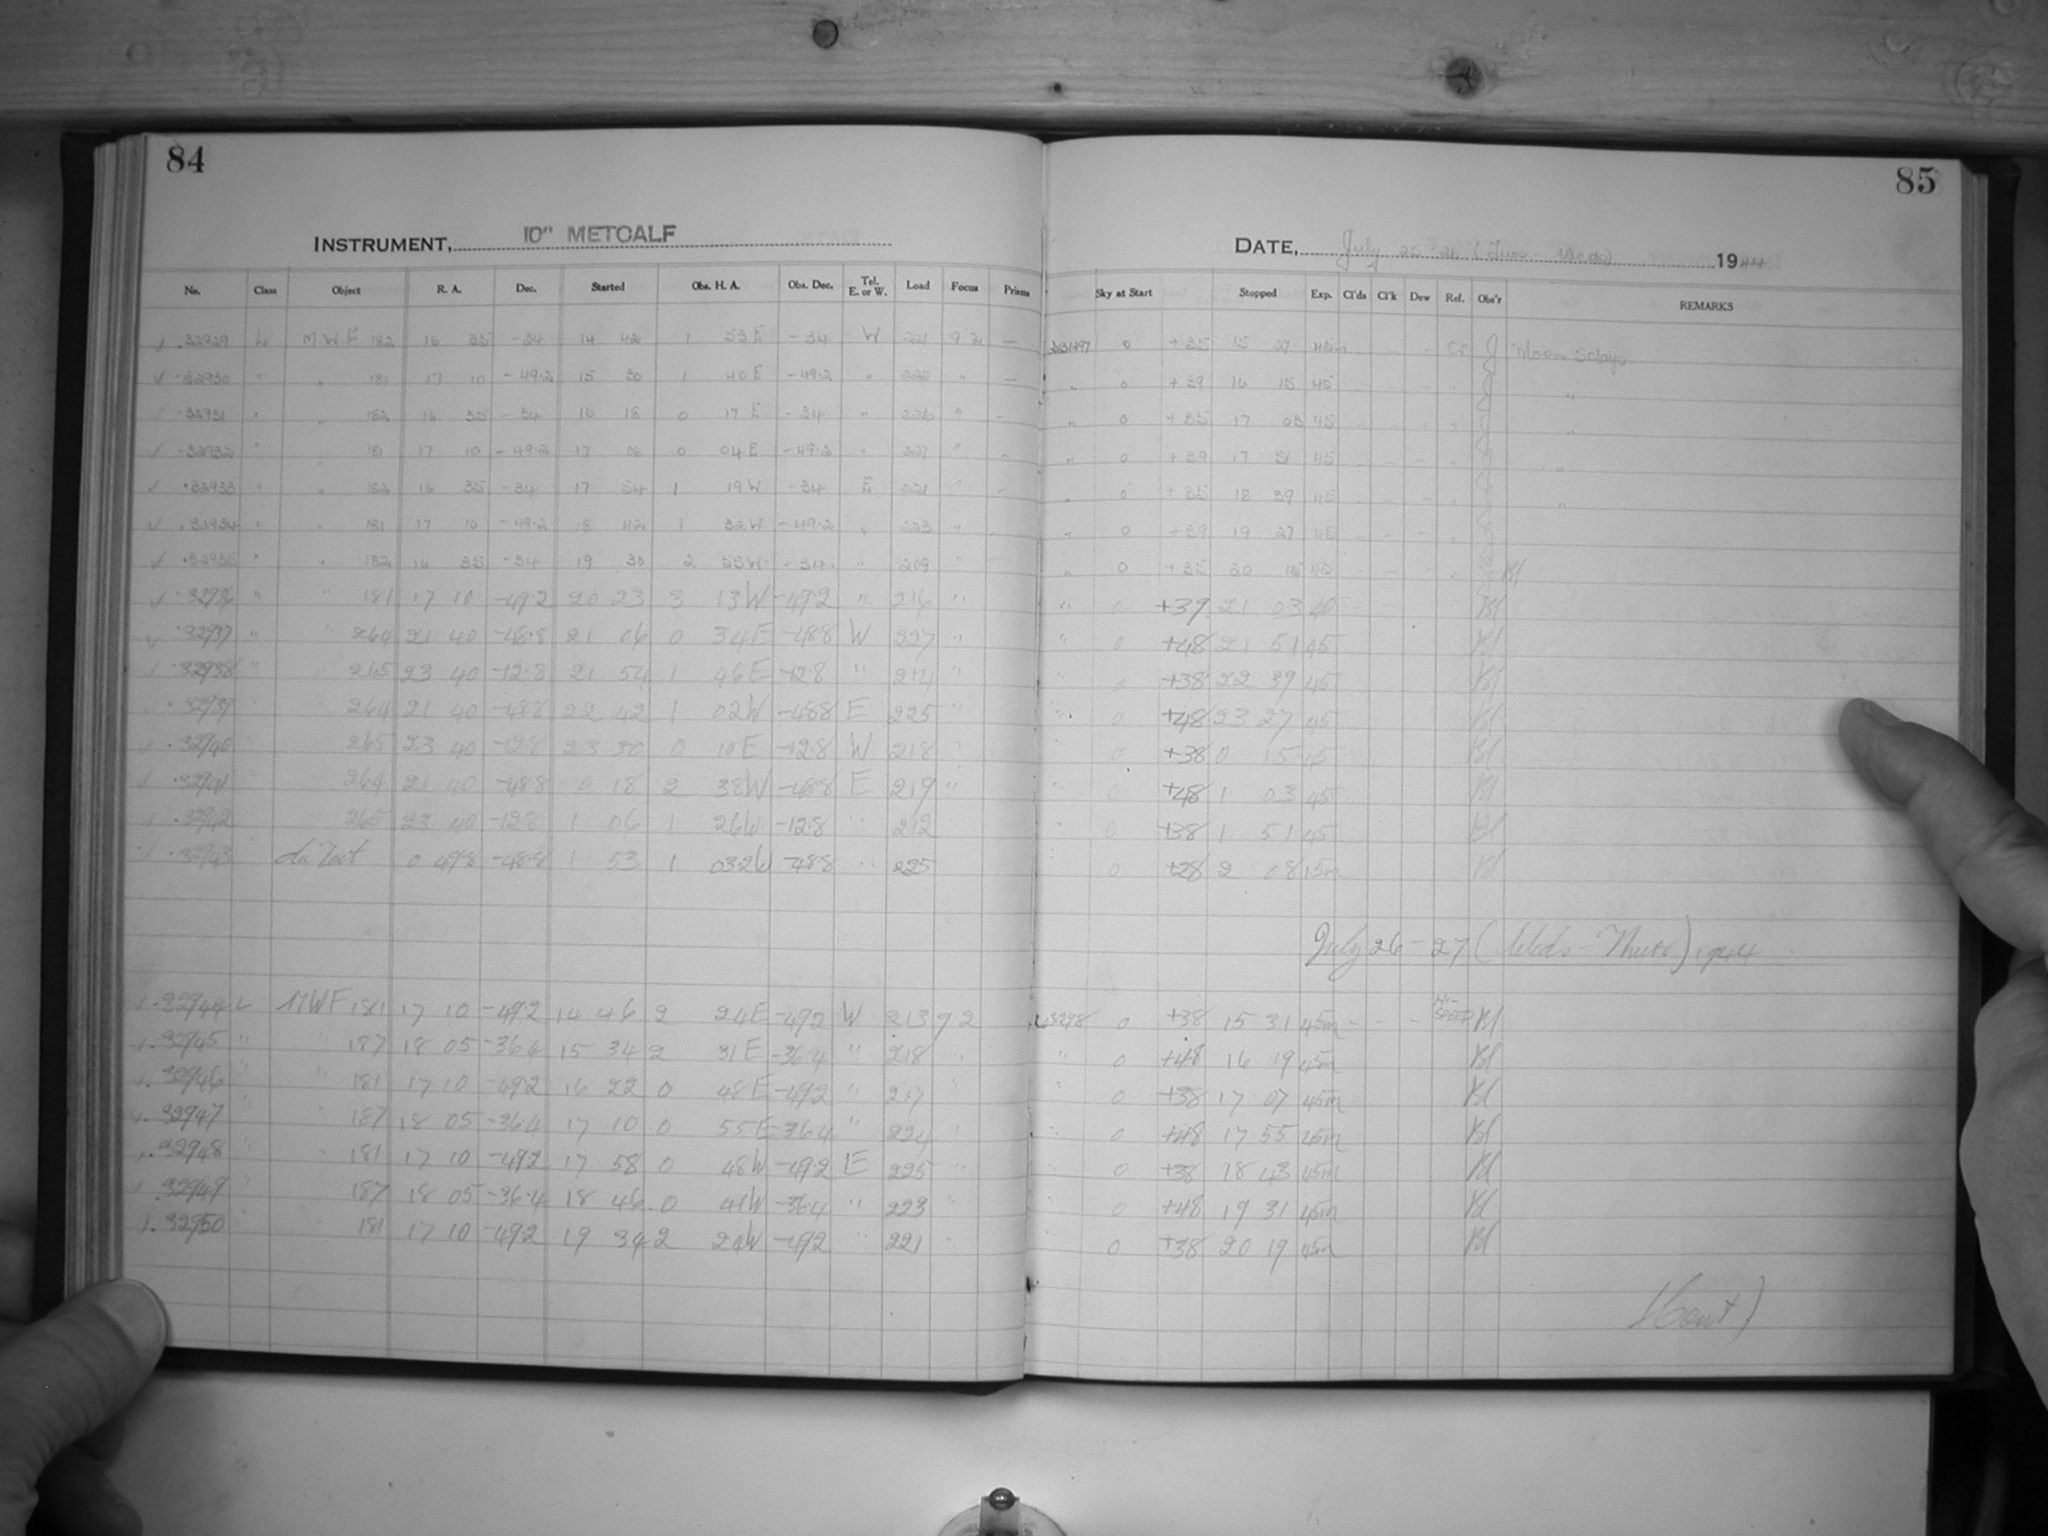 84
85
INSTRUMENT, 10" METCALF
DATE, July 25-26 (Tues - Weds) 1944
No. Class Object R. A. Dec. Started Obs. H. A. Obs. Dec. Tel. E. or W. Load Focus Prisms Sky at Start Stopped Exp. Cl'ds Cl'k Dew Ref. Obs'r REMARKS
32929 L M.W.F. 182 16 35 -34 14 42 1 53 E -34 W 221 9.2 — 0 +35 15 27 45m Cr J Moon 5 days
32930 " " 181 17 10 -49.2 15 30 1 40 E -49.2 " " — " 0 +39 16 15 45 "
32931 " " 182 16 35 -34 16 18 0 17 E -34 " " " 0 +35 17 03 45 "
32932 " " 181 17 10 -49.2 17 06 0 04 E -49.2 " 227 " " 0 +39 17 51 45 "
32933 " " 182 16 35 -34 17 54 1 19 W -34 E 221 " " 0 +35 18 39 45 "
32934 " " 181 17 10 -49.2 18 42 1 32 W -49.2 " 223 " " 0 +39 19 27 45
32935 " " 182 16 35 -34 19 30 2 55 W -34 " 209 " " 0 +35 20 15 45 Bl
32936 " " 181 17 10 -49.2 20 23 3 13 W -49.2 " 216 " " 0 +39 21 03 40 Bl
32937 " " 264 21 40 -48.8 21 06 0 34 E -48.8 W 227 " " 0 +48 21 51 45 Bl
32938 " " 265 23 40 -12.8 21 54 1 46 E -12.8 " 214 " " 0 +38 22 39 45 Bl
32939 " 264 21 40 -48.8 22 42 1 02 W -48.8 E 225 " " 0 +48 23 27 45 Bl
32940 " 265 23 40 -12.8 23 30 0 10 E -12.8 W 218 " 0 +38 0 15 45 Bl
32941 264 21 40 -48.8 0 18 2 38 W -48.8 E 219 " " 0 +48 1 03 45 Bl
32942 265 23 40 -12.8 1 06 1 26 W -12.8 " 212 0 +38 1 51 45 Bl
32943 0 49.8 -48.8 1 53 1 03.2 W -48.8 " 225 0 +28 2 08 15m Bl
July 26-27 (Weds - Thurs) 1944
32944 L MWF 181 17 10 -49.2 14 46 2 24 E -49.2 W 213 9 2 0 +38 15 31 45m - - - HI-SPEED Bl
32945 " " 187 18 05 -36.4 15 34 2 31 E -36.4 " 218 " " 0 +48 16 19 45m Bl
32946 " " 181 17 10 -49.2 16 22 0 48 E -49.2 " 217 " " 0 +38 17 07 45m Bl
32947 " " 187 18 05 -36.4 17 10 0 55 E -36.4 " 224 " " 0 +48 17 55 45m Bl
32948 " " 181 17 10 -49.2 17 58 0 48 W -49.2 E 225 " " 0 +38 18 43 45m Bl
32949 " " 187 18 05 -36.4 18 46 0 41 W -36.4 " 223 " " 0 +48 19 31 45m Bl
32950 181 17 10 -49.2 19 34 2 24 W -49.2 " 221 " 0 +38 20 19 45m Bl
(Cont)